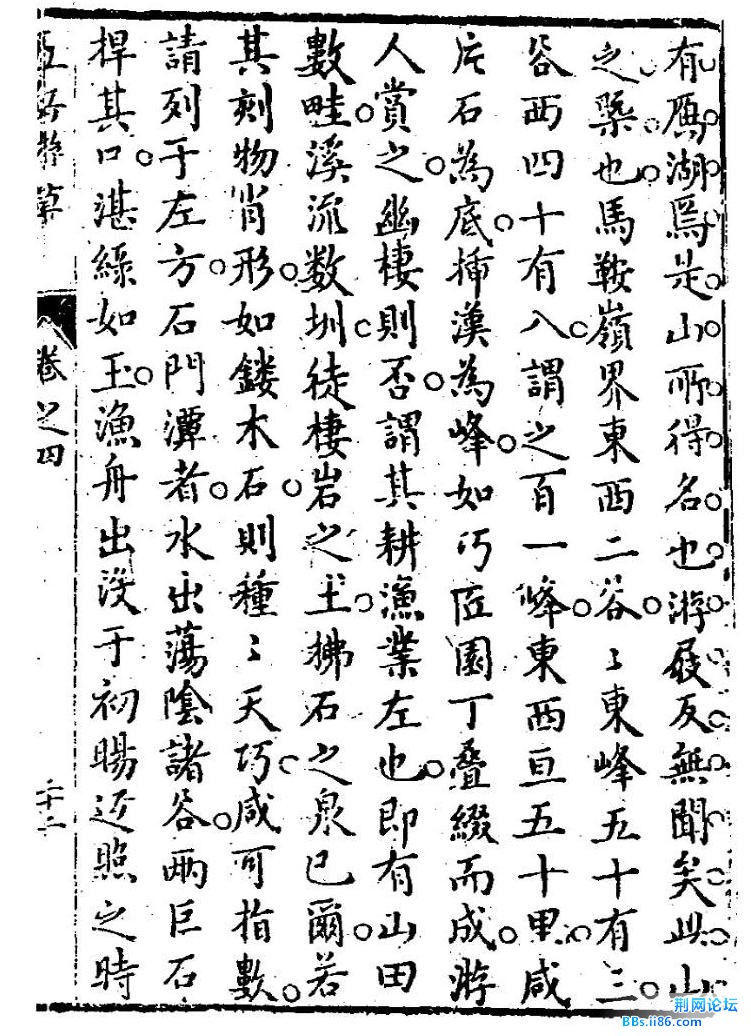 有鴈湖焉是山所得名也游屐反無聞矣此山
之槩也馬鞍嶺界東西二谷〻東峰五十有三
谷西四十有八謂之百一峰東西亘五十里咸
片石為底揷漢為峰如巧匠園丁叠綴而成游
人賞之幽棲則否謂其耕漁業左也即有山田
數畦溪流數圳徒棲岩之土拂石之泉已爾若
其刻物肖形如鏤木石則種〻天巧咸可指數
請列于左方石門潭者水出蕩陰諸谷兩巨石
捍其口湛綠如玉漁舟出沒于初暘返照之時
卷之四
二十二
荆网论坛
BBs.ii86.com